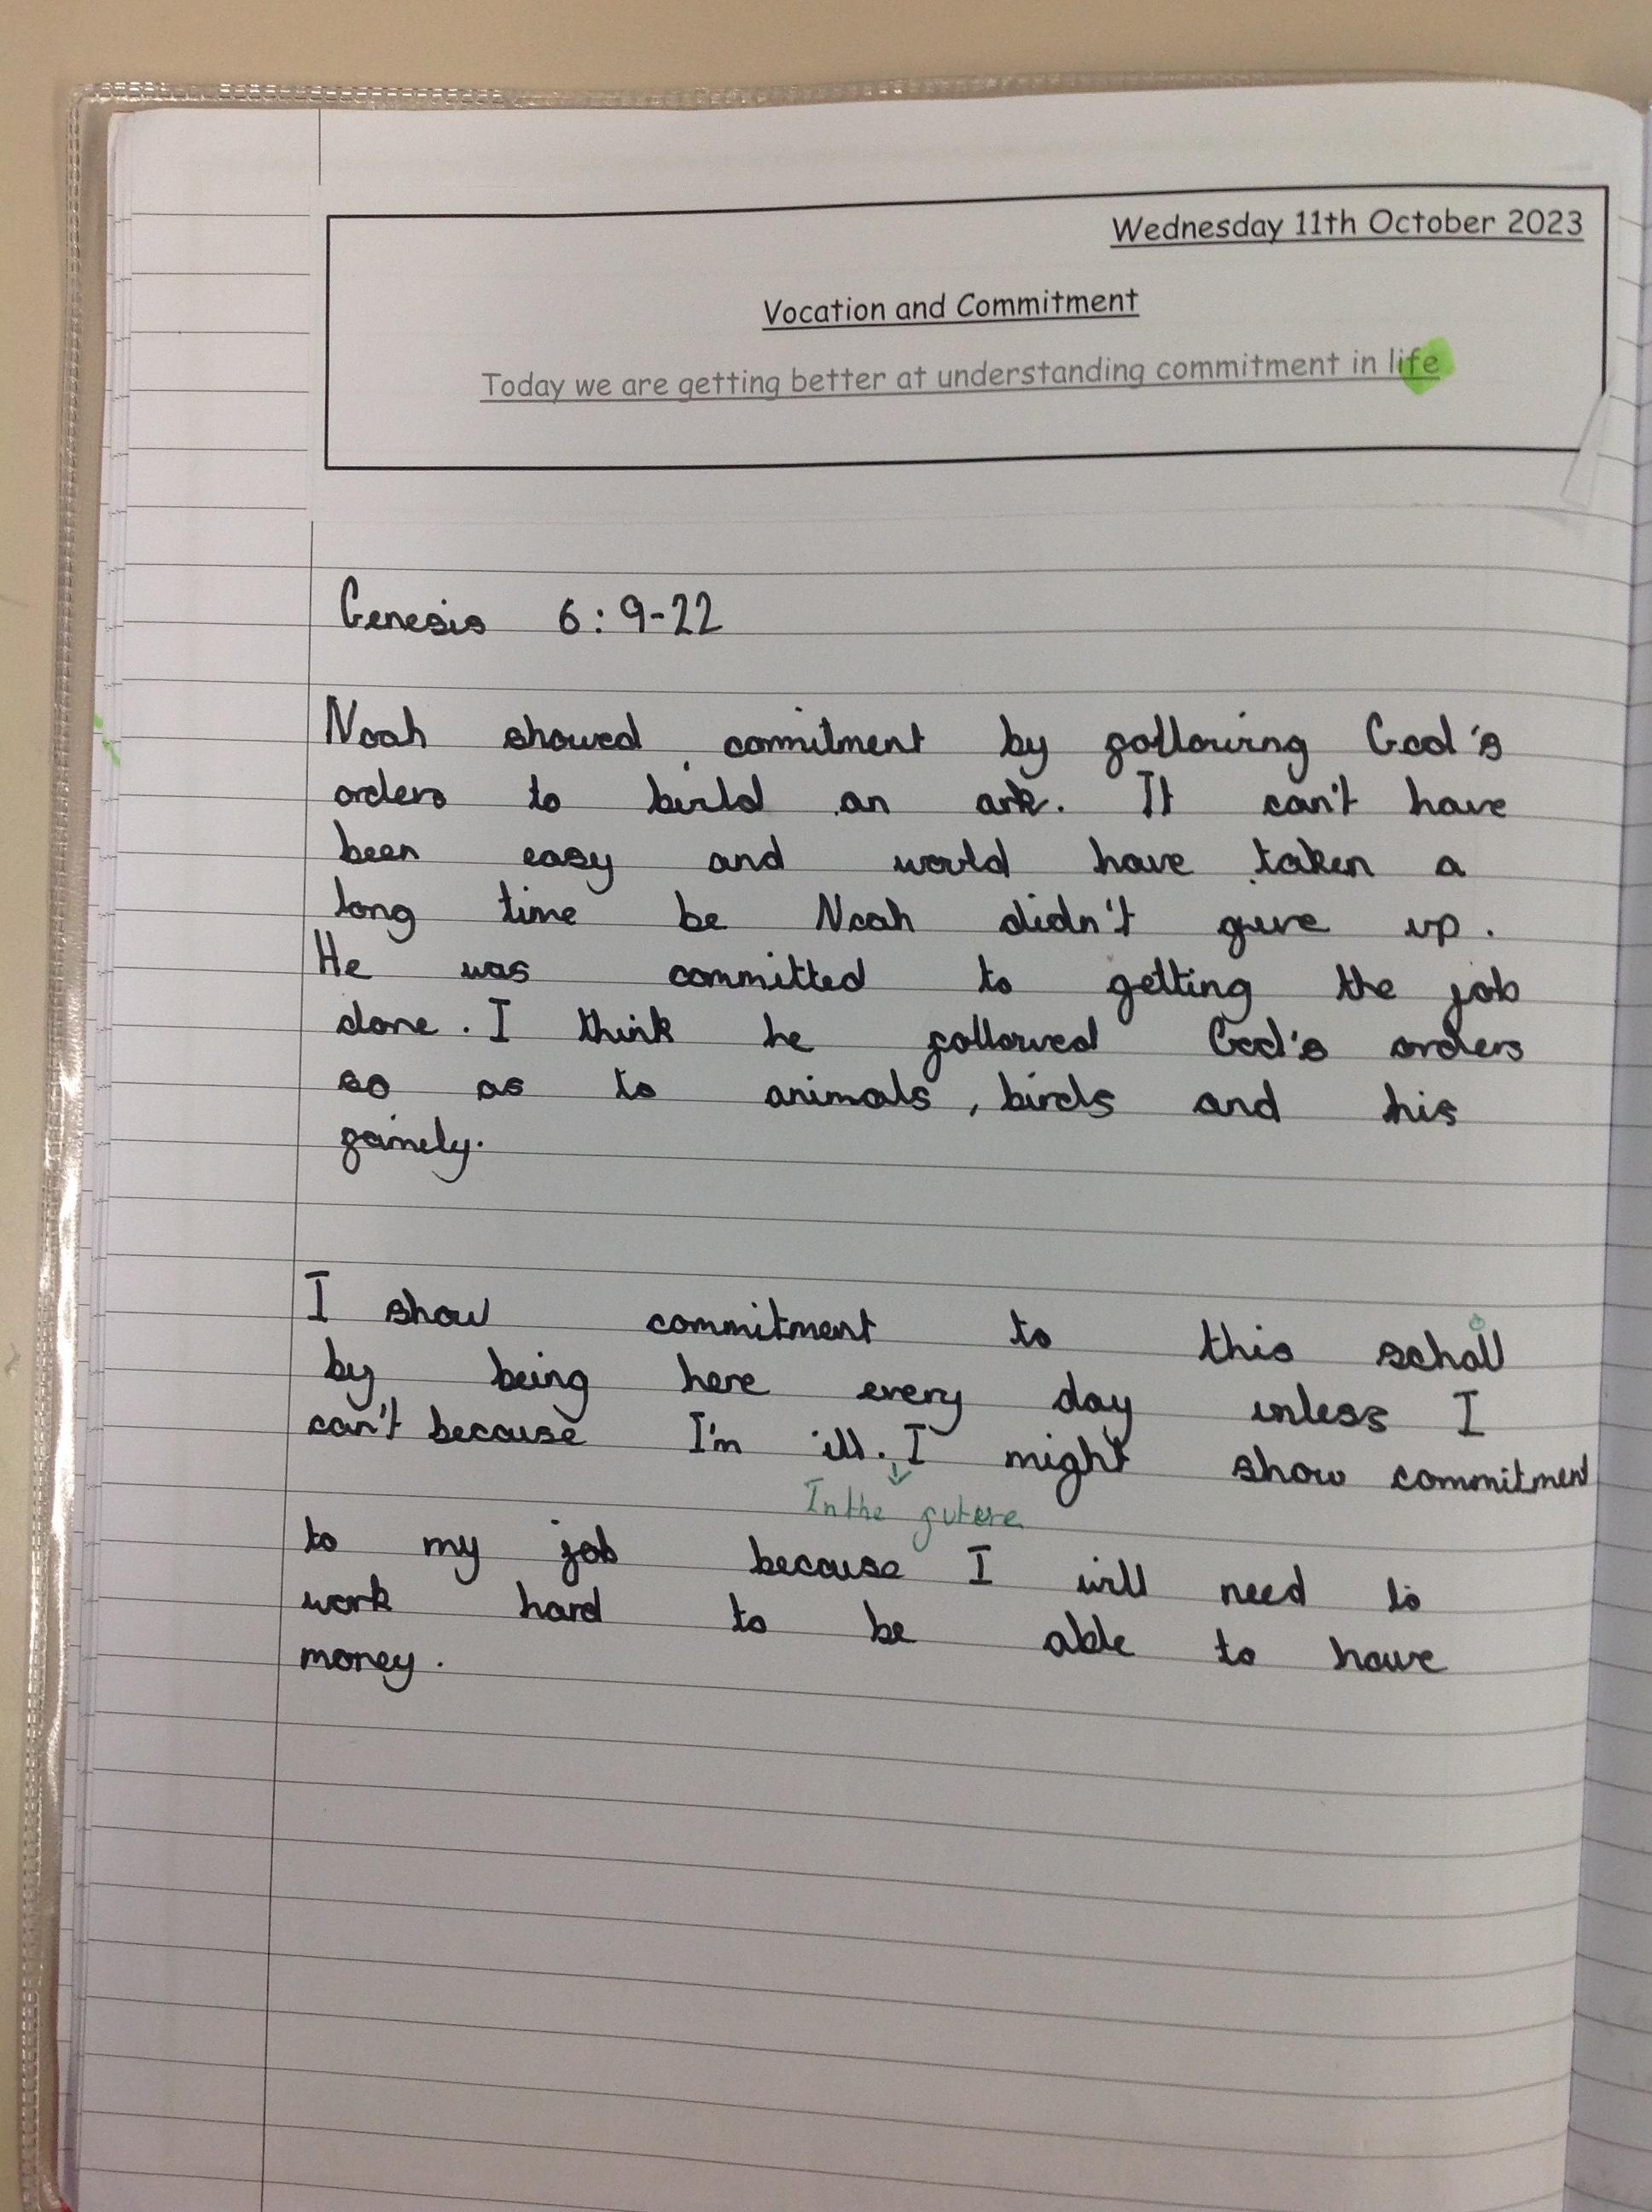 Wednesday 11th October 2023
Vocation and Commitment
Today we are getting better at understanding commitment in life
Genesis 6:9-22
Noah showed commitment by following God's
orders to build an ark. It can't have
been easy and would have taken a
long time be Noah didn't give up.
He was committed to getting the job
done. I think he followed God's orders
so as to animals, birds and his
famely.
I show commitment to this scholl
o
by being here every day unless I
can't because I'm ill. I might show commitment
In the futere
to my job because I will need to
work hard to be able to have
money.